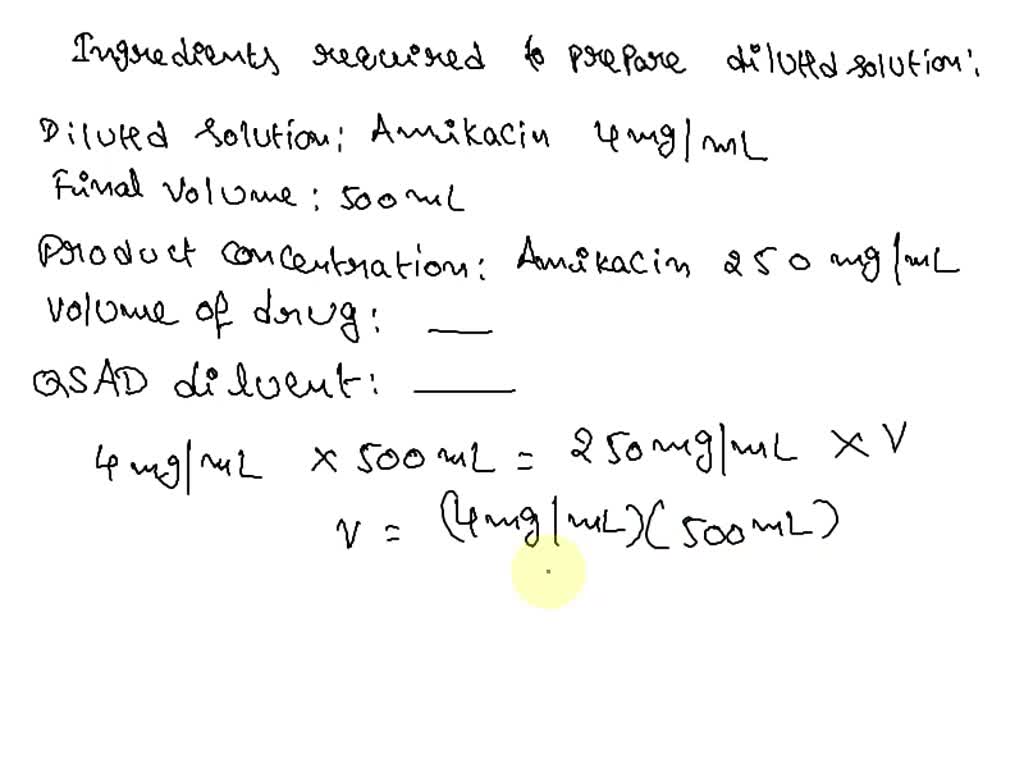 Ingredients required to prepare diluted solution:
Diluted solution: Amikacin 4mg/mL
Final Volume: 500mL
Product concentration: Amikacin 250mg/mL
Volume of drug: ___
QSAD diluent: ____
4mg/mL × 500mL = 250mg/mL × V
V = (4mg/mL)(500mL)